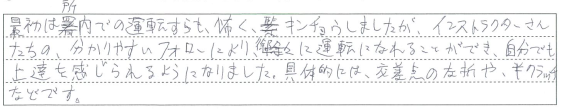 最初は所内での運転すらも、怖く、キンチョウしましたが、インストラクターさん
たちの、分かりやすいフォローにより、徐々に運転になれることができ、自分でも
上達を感じられるようになりました。具体的には、交差点の左折や、半クラッチ
などです。